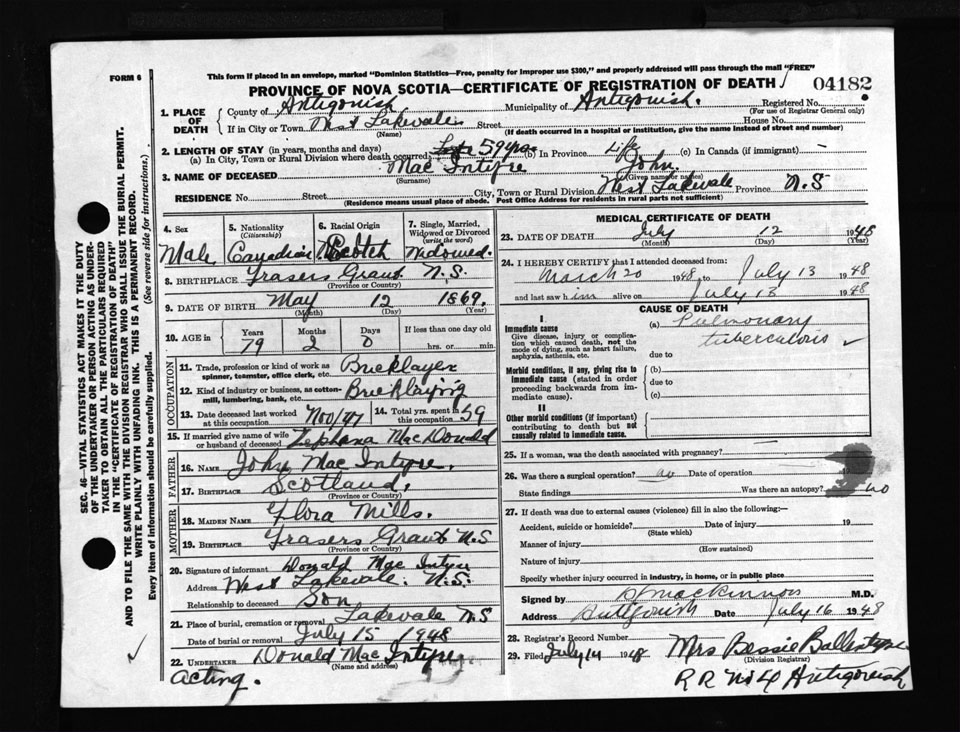 FORM 6
This form if placed in an envelope, marked "Dominion Statistics—Free, penalty for improper use $300," and properly addressed will pass through the mail "FREE"
PROVINCE OF NOVA SCOTIA—CERTIFICATE OF REGISTRATION OF DEATH
04182
1. PLACE OF DEATH
County of Antigonish Municipality of Antigonish. Registered No.
(For use of Registrar General only)
If in City or Town West Lakevale Street House No.
(Name) (If death occurred in a hospital or institution, give the name instead of street and number)
2. LENGTH OF STAY (in years, months and days)
(a) In City, Town or Rural Division where death occurred 59 yrs (b) In Province Life (c) In Canada (if immigrant) —
3. NAME OF DECEASED Mac Intyre John
(Surname) (Given name or names)
RESIDENCE No. Street City, Town or Rural Division West Lakevale Province N.S
(Residence means usual place of abode. Post Office Address for residents in rural parts not sufficient)
SEC. 46—VITAL STATISTICS ACT MAKES IT THE DUTY
OF THE UNDERTAKER OR PERSON ACTING AS UNDER-
TAKER TO OBTAIN ALL THE PARTICULARS REQUIRED
IN THE "CERTIFICATE OF REGISTRATION OF DEATH"
AND TO FILE THE SAME WITH THE DIVISION REGISTRAR WHO SHALL ISSUE THE BURIAL PERMIT.
WRITE PLAINLY WITH UNFADING INK. THIS IS A PERMANENT RECORD.
Every item of information should be carefully supplied. (See reverse side for instructions.)
4. Sex
Male
5. Nationality
(Citizenship)
Canadian
6. Racial Origin
Scotch
7. Single, Married, Widowed or Divorced
(write the word)
Widowed.
8. BIRTHPLACE Frasers Grant N.S.
(Province or Country)
9. DATE OF BIRTH May 12 1869.
(Month) (Day) (Year)
10. AGE in
Years Months Days If less than one day old
79 2 0 hrs. or min.
OCCUPATION
11. Trade, profession or kind of work as
spinner, teamster, office clerk, etc. Bricklayer
12. Kind of industry or business, as cotton-
mill, lumbering, bank, etc. Bricklaying
13. Date deceased last worked
at this occupation Nov/47
14. Total yrs. spent in
this occupation 59
15. If married give name of wife
or husband of deceased Zephana MacDonald
FATHER
16. NAME John Mac Intyre.
17. BIRTHPLACE Scotland.
(Province or Country)
MOTHER
18. MAIDEN NAME Flora Mills.
19. BIRTHPLACE Frasers Grant N.S
(Province or Country)
20. Signature of informant Donald Mac Intyre
Address West Lakevale. N.S.
Relationship to deceased Son
21. Place of burial, cremation or removal Lakevale N.S
Date of burial or removal July 15 1948
22. UNDERTAKER Donald Mac Intyre
(Name and address)
acting.
MEDICAL CERTIFICATE OF DEATH
23. DATE OF DEATH July 12 1948
(Month) (Day) (Year)
24. I HEREBY CERTIFY that I attended deceased from:
March 20 1948 to July 13 1948
and last saw him alive on July 13 1948
CAUSE OF DEATH
I
Immediate cause
Give disease, injury or complica-
tion which caused death, not the
mode of dying, such as heart failure,
asphyxia, asthenia, etc.
(a) Pulmonary
tuberculosis
due to
Morbid conditions, if any, giving rise to
immediate cause (stated in order
proceeding backwards from im-
mediate cause).
(b)
due to
(c)
II
Other morbid conditions (if important)
contributing to death but not
causally related to immediate cause.
25. If a woman, was the death associated with pregnancy?
26. Was there a surgical operation? no Date of operation 19
State findings Was there an autopsy? no
27. If death was due to external causes (violence) fill in also the following:—
Accident, suicide or homicide? Date of injury 19
(State which)
Manner of injury
(How sustained)
Nature of injury
Specify whether injury occurred in industry, in home, or in public place
Signed by MacKinnon M.D.
Address Antigonish Date July 16 1948
28. Registrar's Record Number
29. Filed July 14 1948 Mrs Bessie Ballantyne
(Division Registrar)
R R No 4 Antigonish